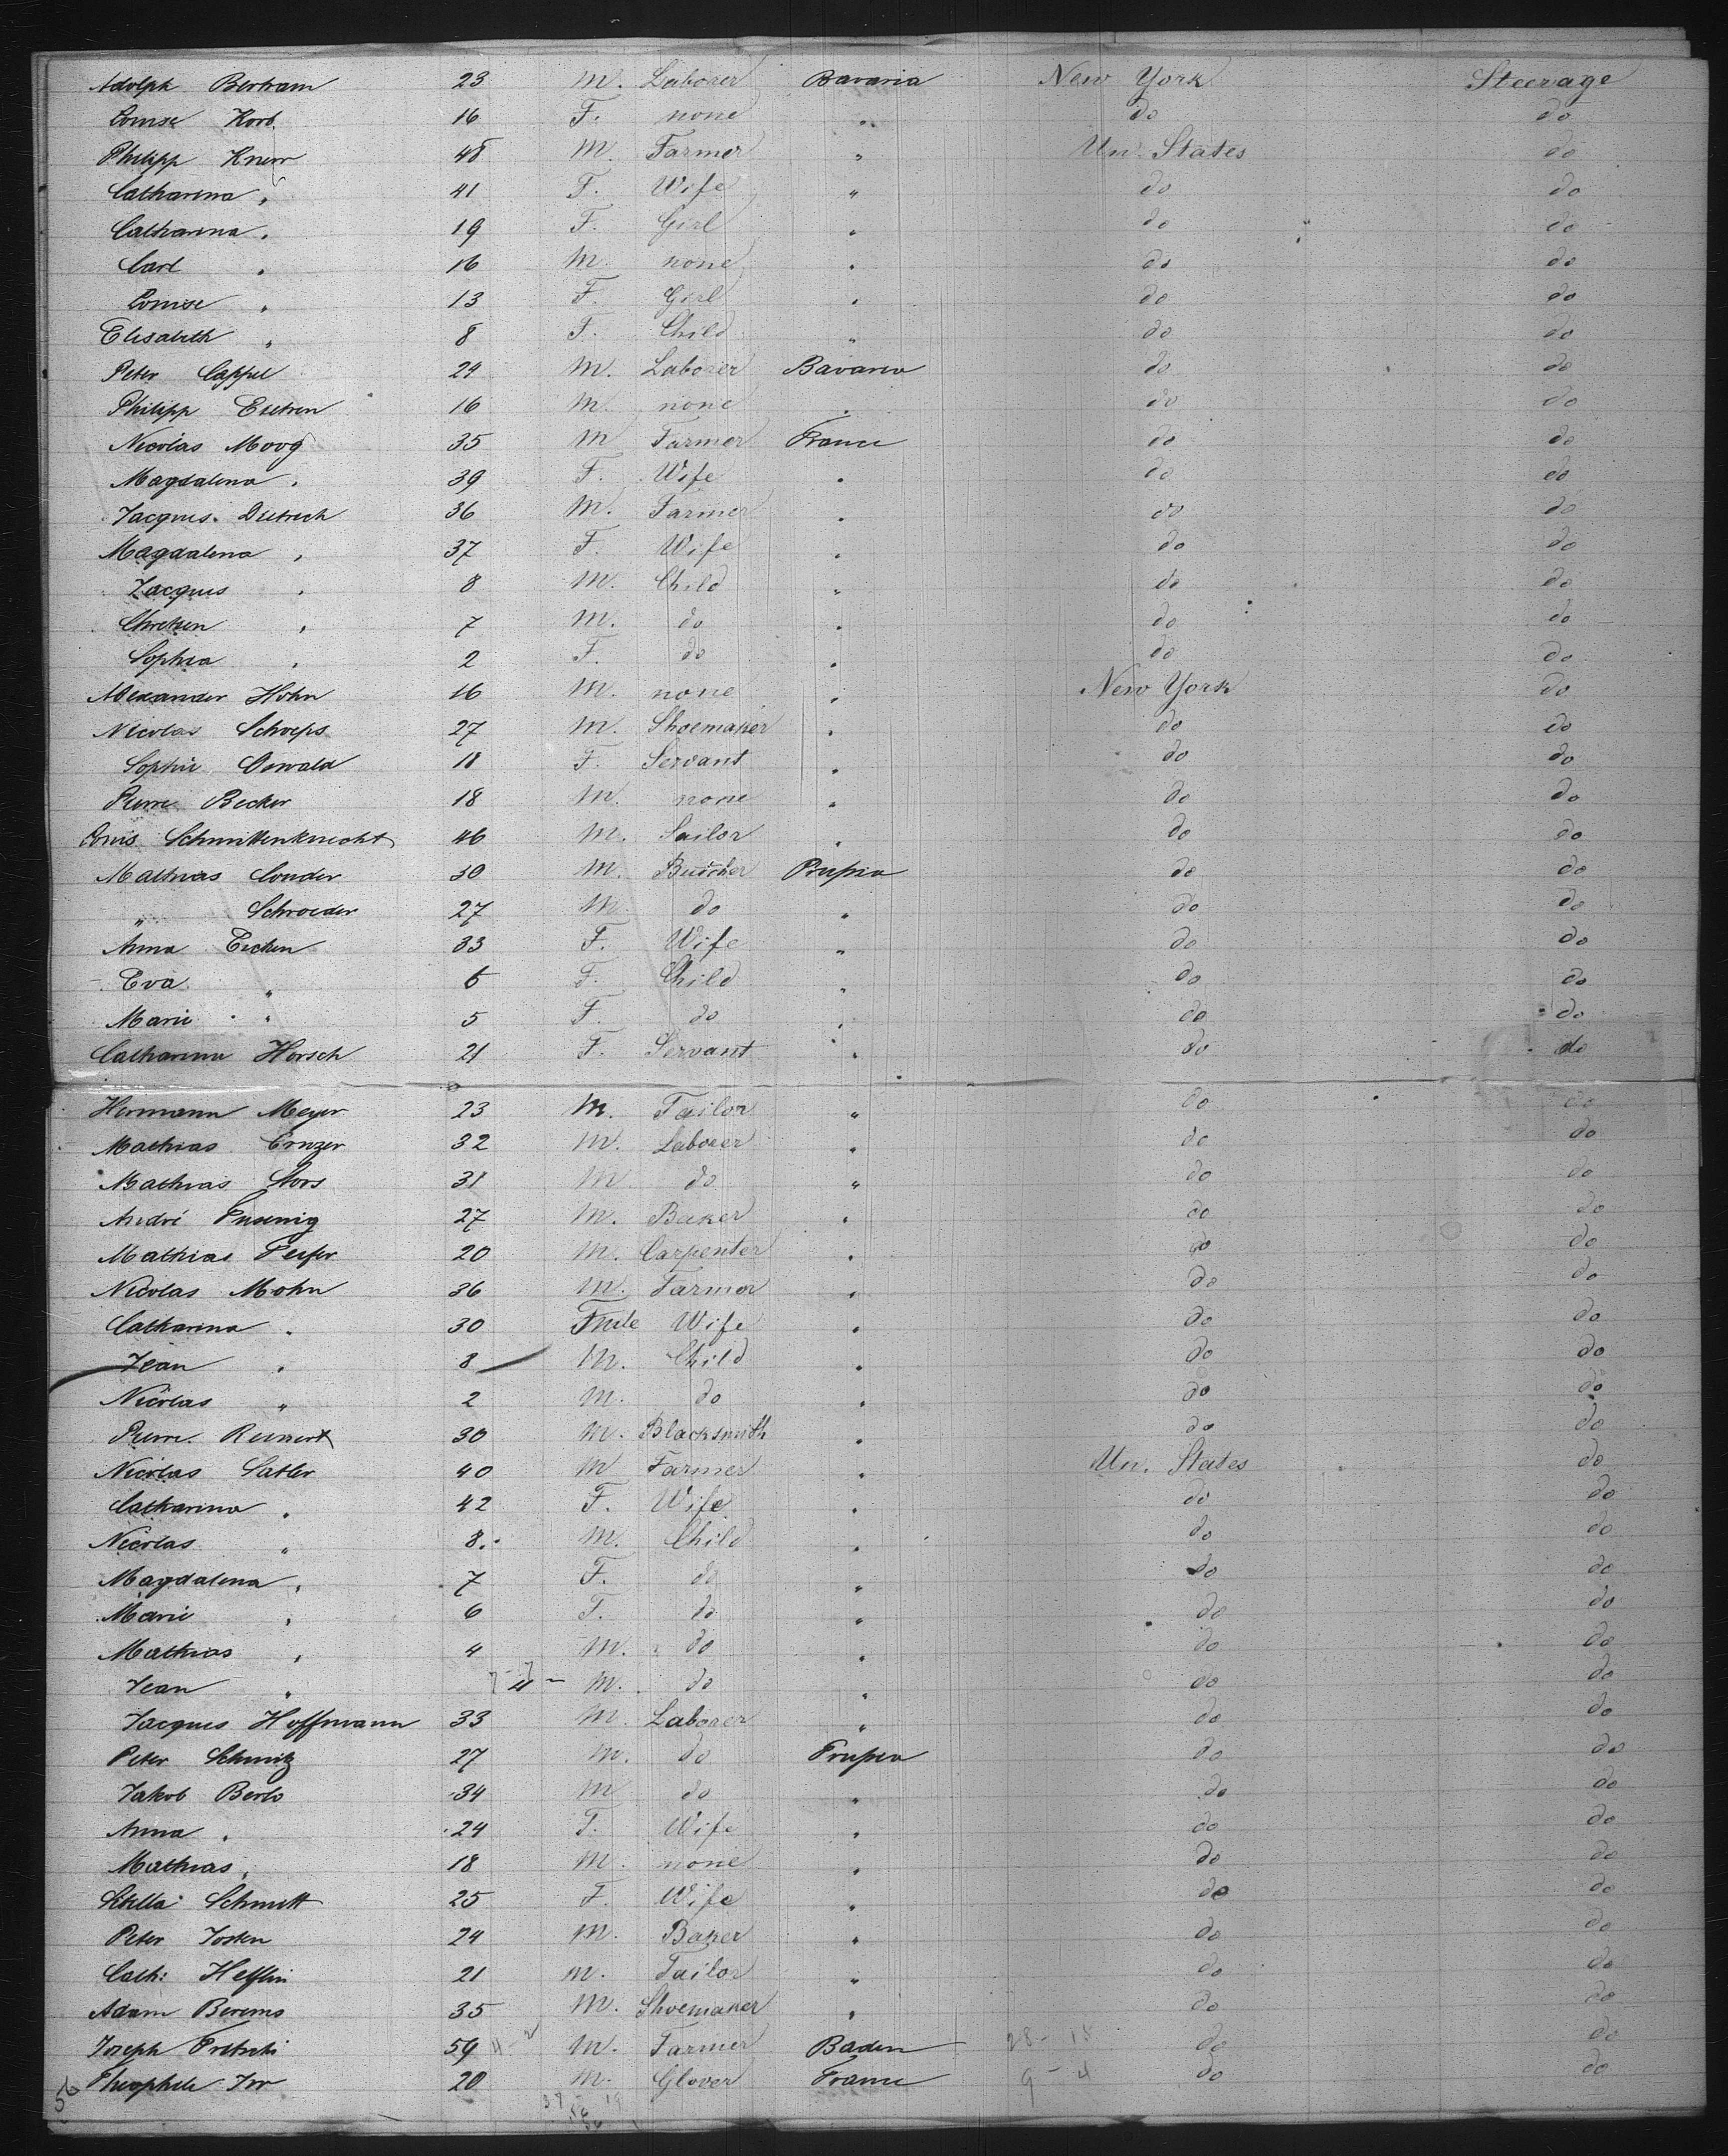 Adolph Bertram 23 M. Laborer Bavaria New York Steerage
Louise Korb 16 F. none " do do
Philipp Knerr 48 M. Farmer " Un. States do
Catharina " 41 F. Wife " do do
Catharina " 19 F. Girl " do do
Carl " 16 M. none " do do
Louise " 13 F. Girl " do do
Elisabeth " 8 F. Child " do do
Peter Cappel 24 M. Laborer Bavaria do do
Philipp 16 M. none " do do
Nicolas Moog 35 M Farmer France do do
Magdalena " 39 F. Wife " do do
Jacques Dietrich 36 M. Farmer " do do
Magdalena " 37 F. Wife " do do
Jacques " 8 M. Child " do do
Chretien " 7 M. do " do do
Sophia " 2 F. do " do do
Alexander Hohn 16 M. none " New York do
Nicolas Schoeps 27 M. Shoemaker " do do
Sophie Oswald 18 F. Servant " do do
Pierre Becker 18 M. none " do do
Louis Schmittenknecht 46 M. Sailor " do do
Mathias Conder 30 M. Butcher Prussia do do
" Schroeder 27 M. do " do do
Anna Eichen 33 F. Wife " do do
Eva " 6 F. Child " do do
Marie " 5 F. do " do do
Catharina Horsch 21 F. Servant " do do
Hermann Meyer 23 M. Tailor " do do
Mathias Ernzer 32 M. Laborer " do do
Mathias 31 M. do " do do
André 27 M. Baker " do do
Mathias Peifer 20 M. Carpenter " do do
Nicolas Mohn 36 M. Farmer " do do
Catharina " 30 Fmle Wife " do do
Jean " 8 M. Child " do do
Nicolas " 2 M. do " do do
Pierre Reinert 30 M. Blacksmith " do do
Nicolas Satler 40 M Farmer " Un. States do
Catharina " 42 F. Wife " do do
Nicolas " 8 M. Child " do do
Magdalena " 7 F. do " do do
Marie " 6 F. do " do do
Mathias " 4 M. do " do do
Jean " M. do " do do
Jacques Hoffmann 33 M. Laborer " do do
Peter Schmitz 27 M. do Prussia do do
Jakob Berlo 34 M do " do do
Anna " 24 F. Wife " do do
Mathias " 18 M. none " do do
Schmitt 25 F. Wife " do do
Peter Josten 24 M. Baker " do do
Cath: Hefflin 21 M. Tailor " do do
Adam Berems 35 M. Shoemaker " do do
Joseph Fritschi 59 11-2 M. Farmer Baden 28-15 do do
Theophile Irr 20 M. Glover France 9-4 do do
56